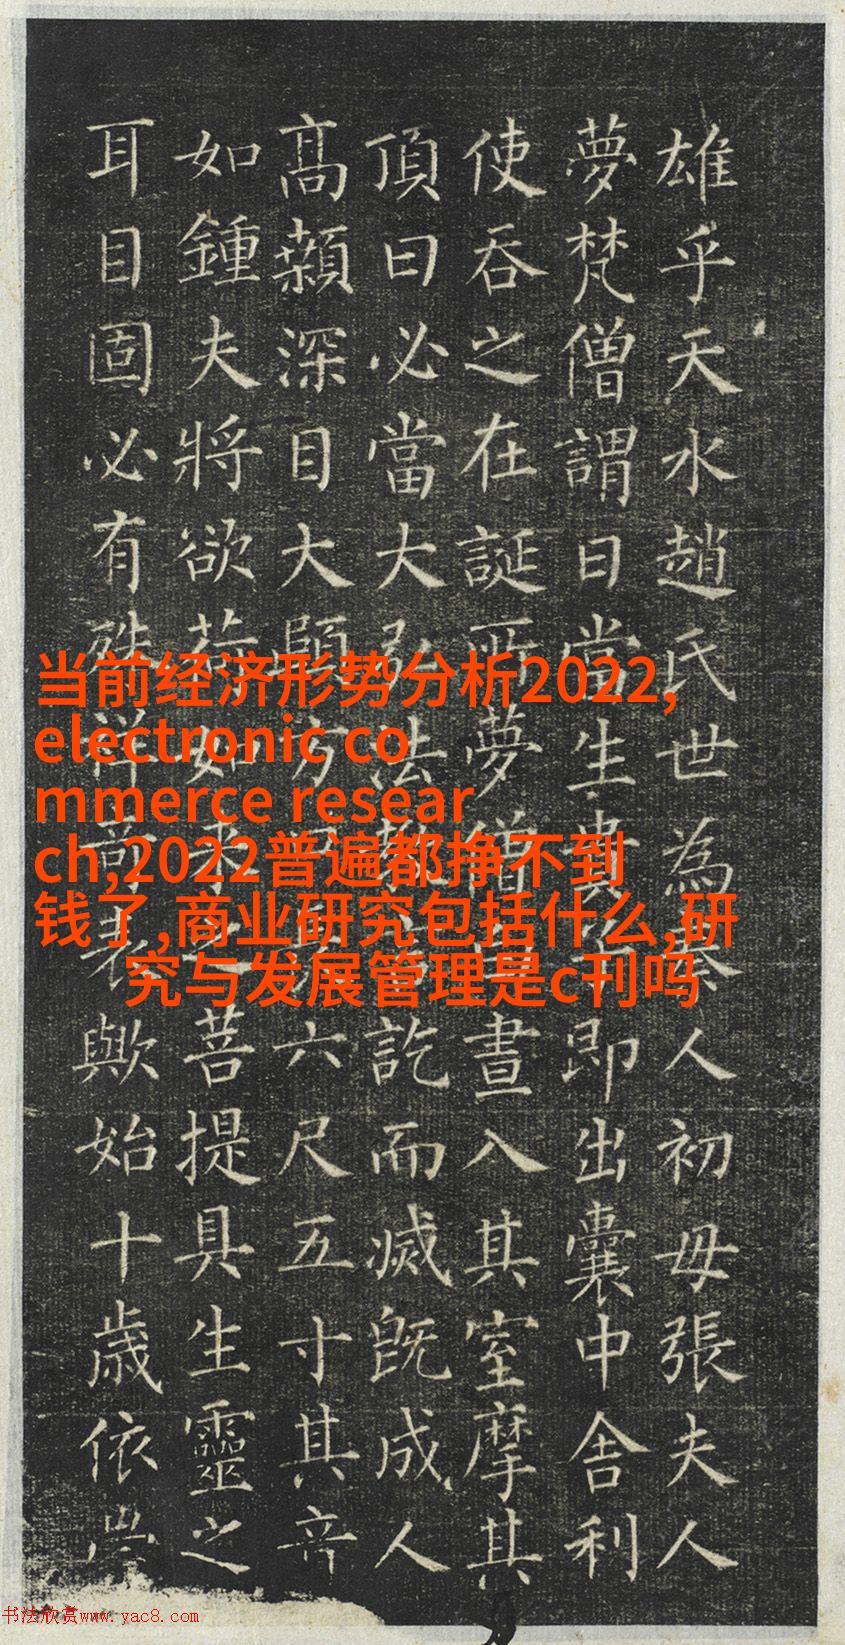 雄乎天水趙氏世為秦人初母張夫人
夢梵僧謂曰當生貴子即出囊中舍利
使吞之在誕所夢僧白晝入其室摩其
頂曰必當大弘法教言訖而滅既成人
高顙深目大頤方口六尺五寸其音
如鍾夫將欲荷如來之菩提具生靈之
耳目固必有殊祥奇表歟始十歲依
当前经济形势分析2022,
electronic co
mmerce resear
ch,2022普遍都挣不到
钱了,商业研究包括什么,研
究与发展管理是c刊吗
书法欣赏www.yac8.com